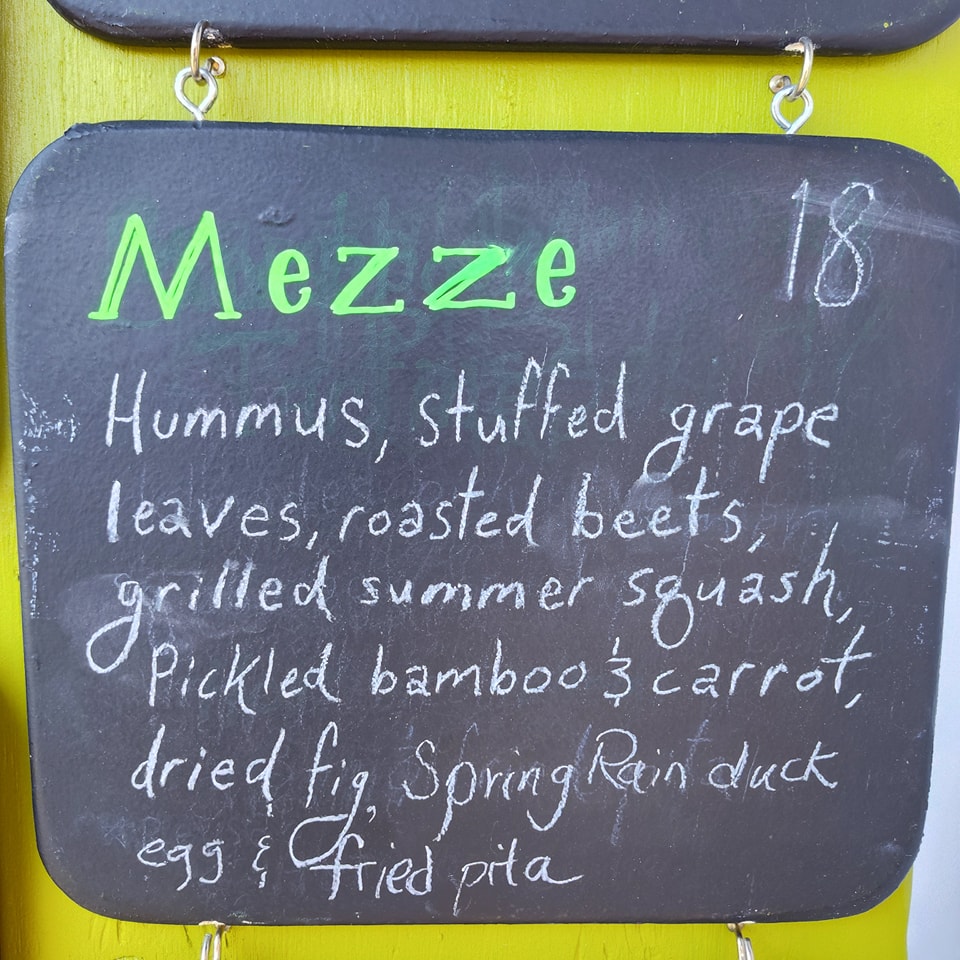 Mezze 18
Hummus, stuffed grape
leaves, roasted beets,
grilled summer squash,
Pickled bamboo & carrot,
dried fig, Spring Rain duck
egg & fried pita